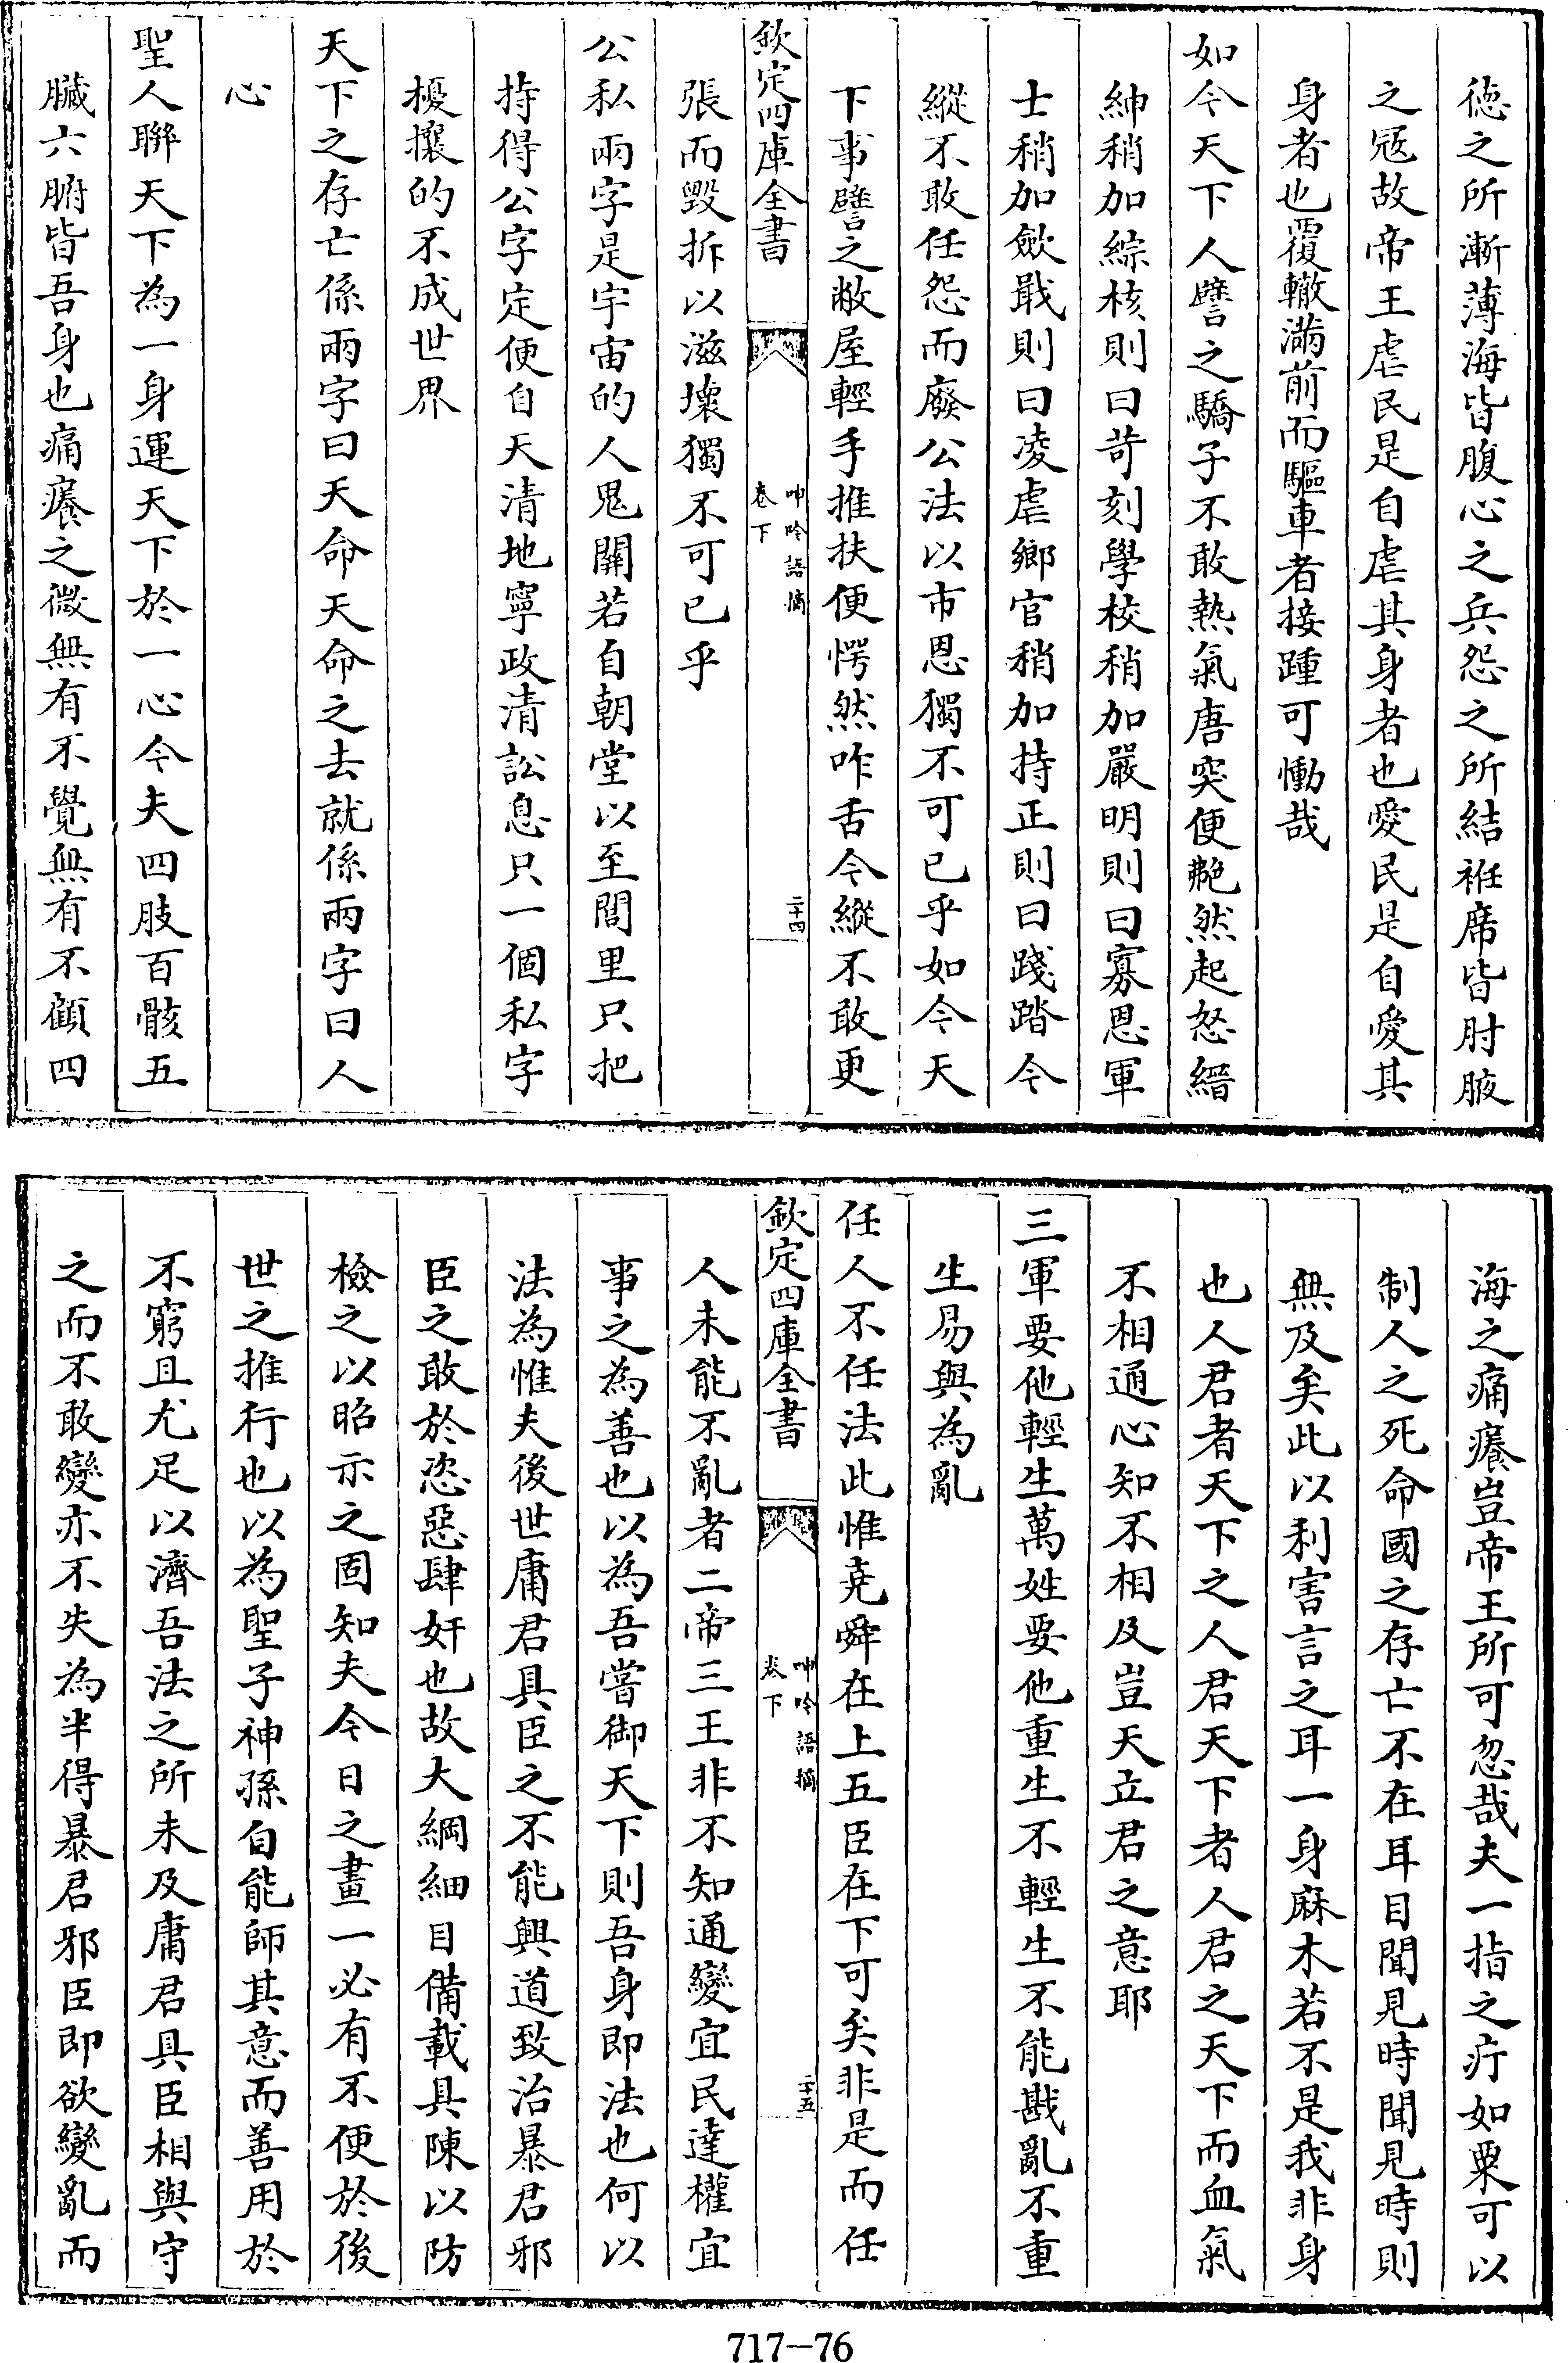 徳之所漸薄海皆腹心之兵怨之所結袵席皆肘腋
之冦故帝王虐民是自虐其身者也愛民是自愛其
身者也覆轍滿前而驅車者接踵可慟哉
如今天下人譬之驕子不敢熱氣唐突便艴然起怒縉
紳稍加綜核則曰苛刻學校稍加嚴明則曰寡恩軍
士稍加歛戢則曰凌虐鄉官稍加持正則曰踐踏今
縱不敢任怨而廢公法以市恩獨不可已乎如今天
下事譬之敝屋輕手推扶便愕然咋舌今縱不敢更
欽定四庫全書
呻吟語摘
卷下
二十四
張而毀拆以滋壞獨不可已乎
公私兩字是宇宙的人鬼關若自朝堂以至閭里只把
持得公字定便自天清地寧政清訟息只一個私字
擾攘的不成世界
天下之存亡係兩字曰天命天命之去就係兩字曰人
心
聖人聯天下為一身運天下於一心今夫四肢百骸五
臟六腑皆吾身也痛癢之微無有不覺無有不顧四
海之痛癢豈帝王所可忽哉夫一指之疔如粟可以
制人之死命國之存亡不在耳目聞見時聞見時則
無及矣此以利害言之耳一身麻木若不是我非身
也人君者天下之人君天下者人君之天下而血氣
不相通心知不相及豈天立君之意耶
三軍要他輕生萬姓要他重生不輕生不能戡亂不重
生易與為亂
任人不任法此惟堯舜在上五臣在下可矣非是而任
欽定四庫全書
呻吟語摘
卷下
二十五
人未能不亂者二帝三王非不知通變宜民達權宜
事之為善也以為吾嘗御天下則吾身即法也何以
法為惟夫後世庸君具臣之不能興道致治暴君邪
臣之敢於恣惡肆奸也故大綱細目備載具陳以防
檢之以昭示之固知夫今日之畫一必有不便於後
世之推行也以為聖子神孫自能師其意而善用於
不窮且尤足以濟吾法之所未及庸君具臣相與守
之而不敢變亦不失為半得暴君邪臣即欲變亂而
717—76